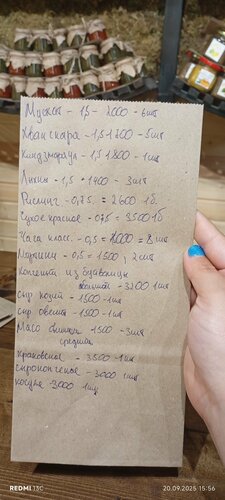 Мускат - 1,5 - 2000 - 6шт
Хванчкара - 1,5 1800 - 5шт
Киндзмараули - 1,5 1800 - 1шт
Лыхны - 1,5 - 1400 - 3шт
Рислинг - 0,75 = 2600 1б.
Чужое красное - 0,75 = 3500 1б
Чача класс. - 0,5 = 1000 = 8шт
Мартини - 0,5 = 1500, 2шт
Конфета из буйволицы
- 3200 1шт
сыр козий - 1500 - 1шт
сыр овечий - 1500 - 1шт
Масо - 1500 - 3шт
средняя
краковское - 3500 - 1шт
сырокопченое - 3000 1шт
косуля - 3000 1шт
REDMI 13C
20.09.2025 15:56